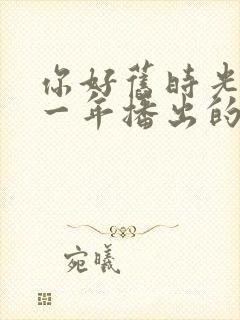 你好旧时光
一年播出的
宛曦